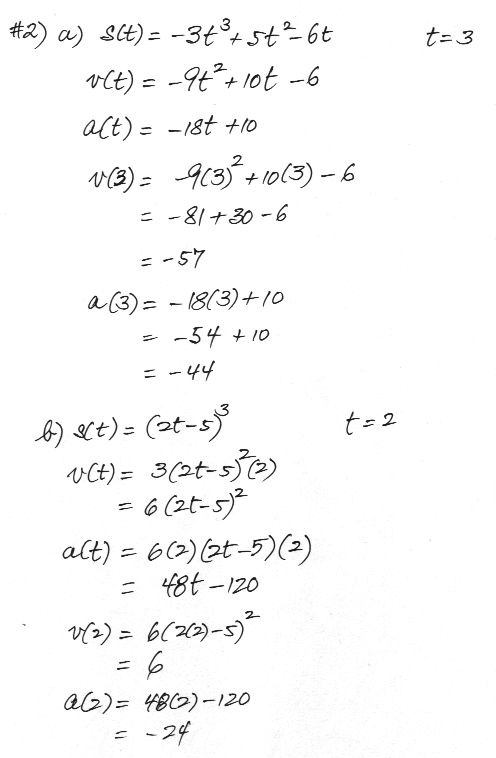 #2) a) s(t) = -3t³ + 5t² - 6t t = 3
v(t) = -9t² + 10t - 6
a(t) = -18t + 10
v(3) = -9(3)² + 10(3) - 6
= -81 + 30 - 6
= -57
a(3) = -18(3) + 10
= -54 + 10
= -44
b) s(t) = (2t-5)³ t = 2
v(t) = 3(2t-5)²(2)
= 6(2t-5)²
a(t) = 6(2)(2t-5)(2)
= 48t - 120
v(2) = 6(2(2)-5)²
= 6
a(2) = 48(2) - 120
= -24